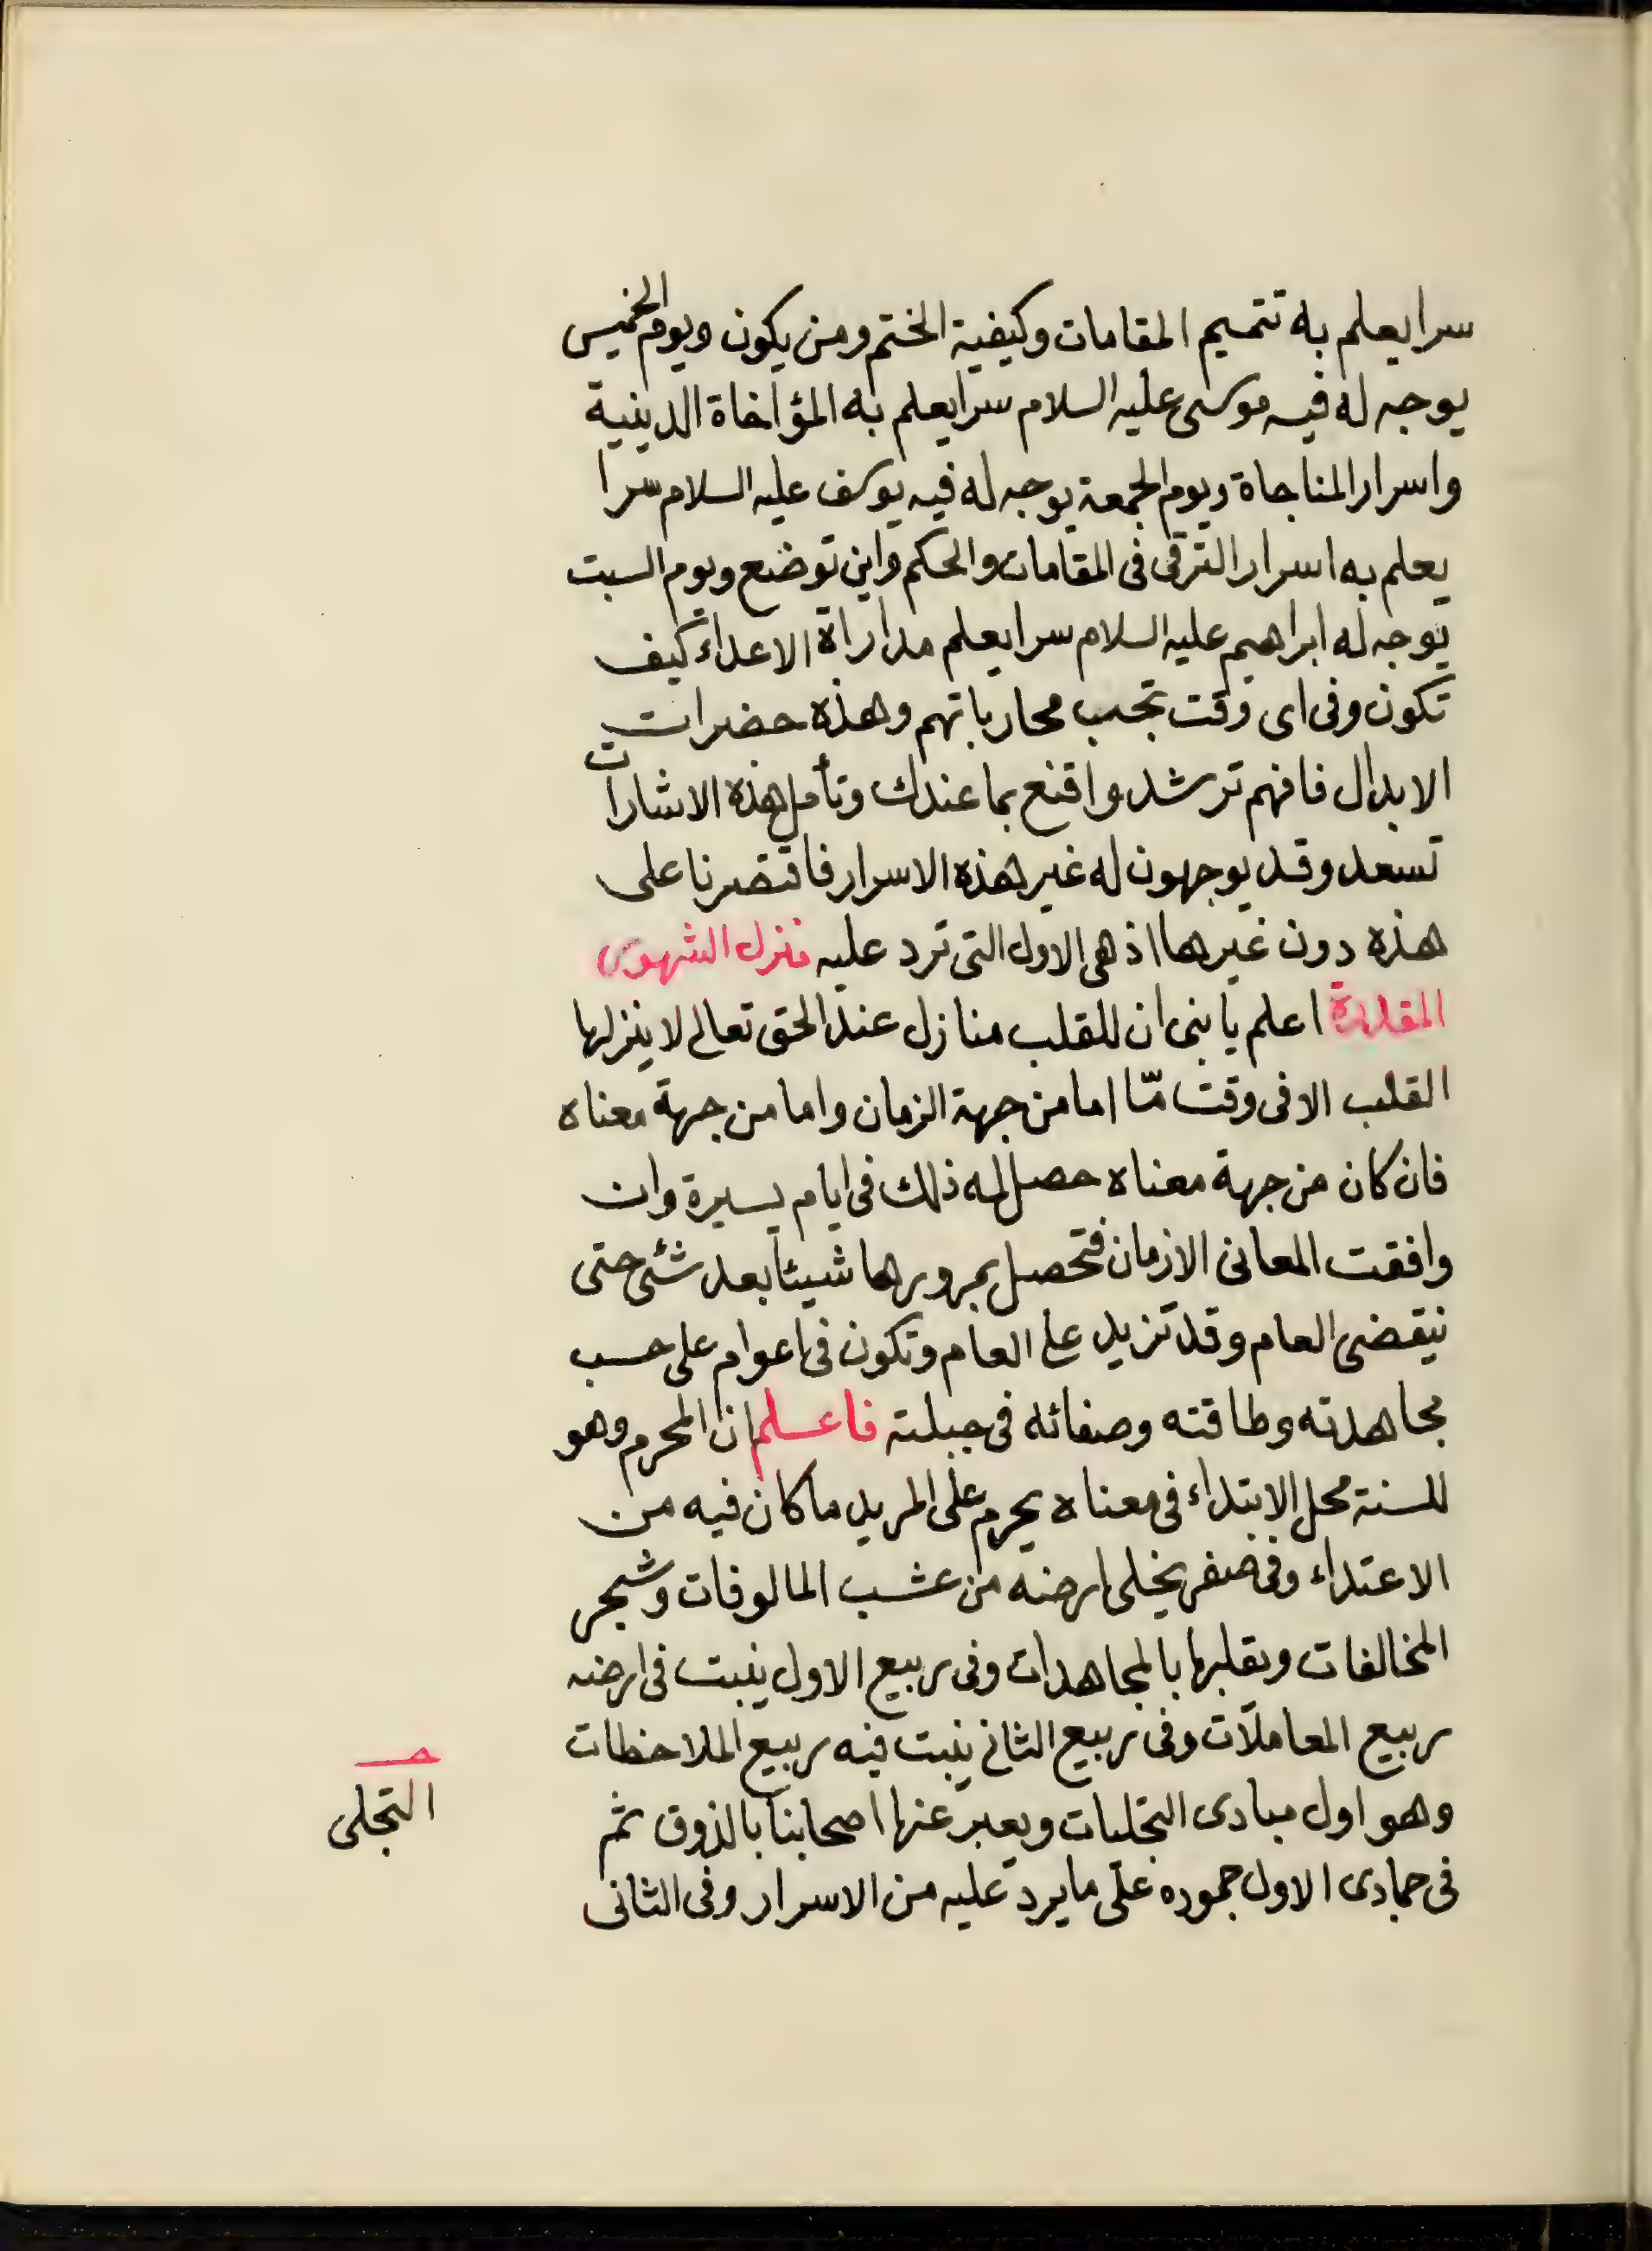 سرا يعلم به تتميم المقامات وكيفية الختم ومن يكون ويوم الخميس
يوجه له فيه موسى عليه السلام سرا يعلم به المؤاخاة الدينية
واسرار المناجاة ويوم الجمعة يوجه له فيه يوسف عليه السلام سرا
يعلم به اسرار الترقى فى المقامات والحكم واين توضع ويوم السبت
يوجه له ابراهيم عليه السلام سرا يعلم مداراة الاعداء كيف
تكون وفى اى وقت تجب محارباتهم وهذه حضرات
الابدال فافهم ترشد واقنع بما عندك وتأمل هذه الاشارات
تسعد وقد يوجهون له غير هذه الاسرار فاقتصرنا على
هذه دون غيرها اذ هى الاول التى ترد عليه منزل الشهور
المقدرة اعلم يا بنى ان للقلب منازل عند الحق تعالى لا ينزلها
القلب الا فى وقت مّا اما من جهة الزمان واما من جهة معناه
فان كان من جهة معناه حصل له ذلك فى ايام يسيرة وان
وافقت المعانى الازمان فتحصل بمرورها شيئا بعد شئ حتى
ينقضى العام وقد تزيد على العام وتكون فى اعوام على حسب
مجاهدته وطاقته وصفائه فى جبلته فاعلم ان المحرم وهو
للسنة محل الابتداء فى معناه يحرم على المريد ما كان فيه من
الاعتداء وفى صفر يخلى ارضه من عشب المالوفات وشجر
المخالفات ويقلبها بالمجاهدات وفى ربيع الاول ينبت فى ارضه
ربيع المعاملات وفى ربيع الثانى ينبت فيه ربيع الملاحظات
وهو اول مبادى التجليات ويعبر عنها اصحابنا بالذوق ثم
فى جمادى الاول جموده على ما يرد عليه من الاسرار وفى الثانى
التجلى